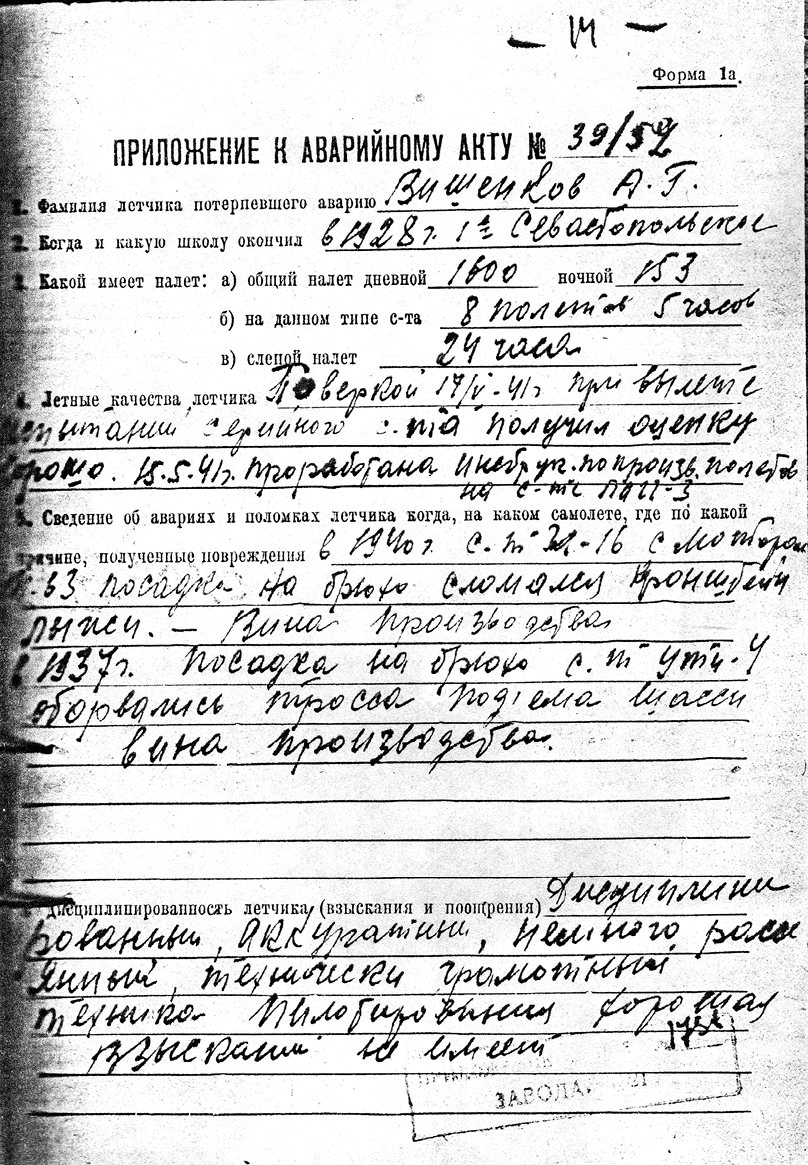 — 14 —
Форма 1а.
ПРИЛОЖЕНИЕ К АВАРИЙНОМУ АКТУ № 39/52
1. Фамилия летчика потерпевшего аварию Вишенков А.Г.
2. Когда и какую школу окончил в 1928г. 1ая Севастопольское
3. Какой имеет налет: а) общий налет дневной 1600 ночной 153
б) на данном типе с-та 8 полетов 5 часов
в) слепой налет 24 часа
4. Летные качества летчика Поверкой 17/V-41г при вылете
испытаний серийного с-та получил оценку
хорошо. 15.5.41г. проработана инструк. по произв. полетов
на с-те
5. Сведение об авариях и поломках летчика когда, на каком самолете, где по какой
причине, полученные повреждения в 1940г. с-т с мотором
63 посадка на брюхо сломался кронштейн
лыжи. — Вина производства
в 1937г. посадка на брюхо с-т ути-4
оборвались тросса подъема шасси
вина производства.
Дисциплинированность летчика (взыскания и поощрения) Дисциплини
рованный, аккуратный, немного рассе
янный, технически грамотный
техника пилотирования хорошая
взысканий не имеет